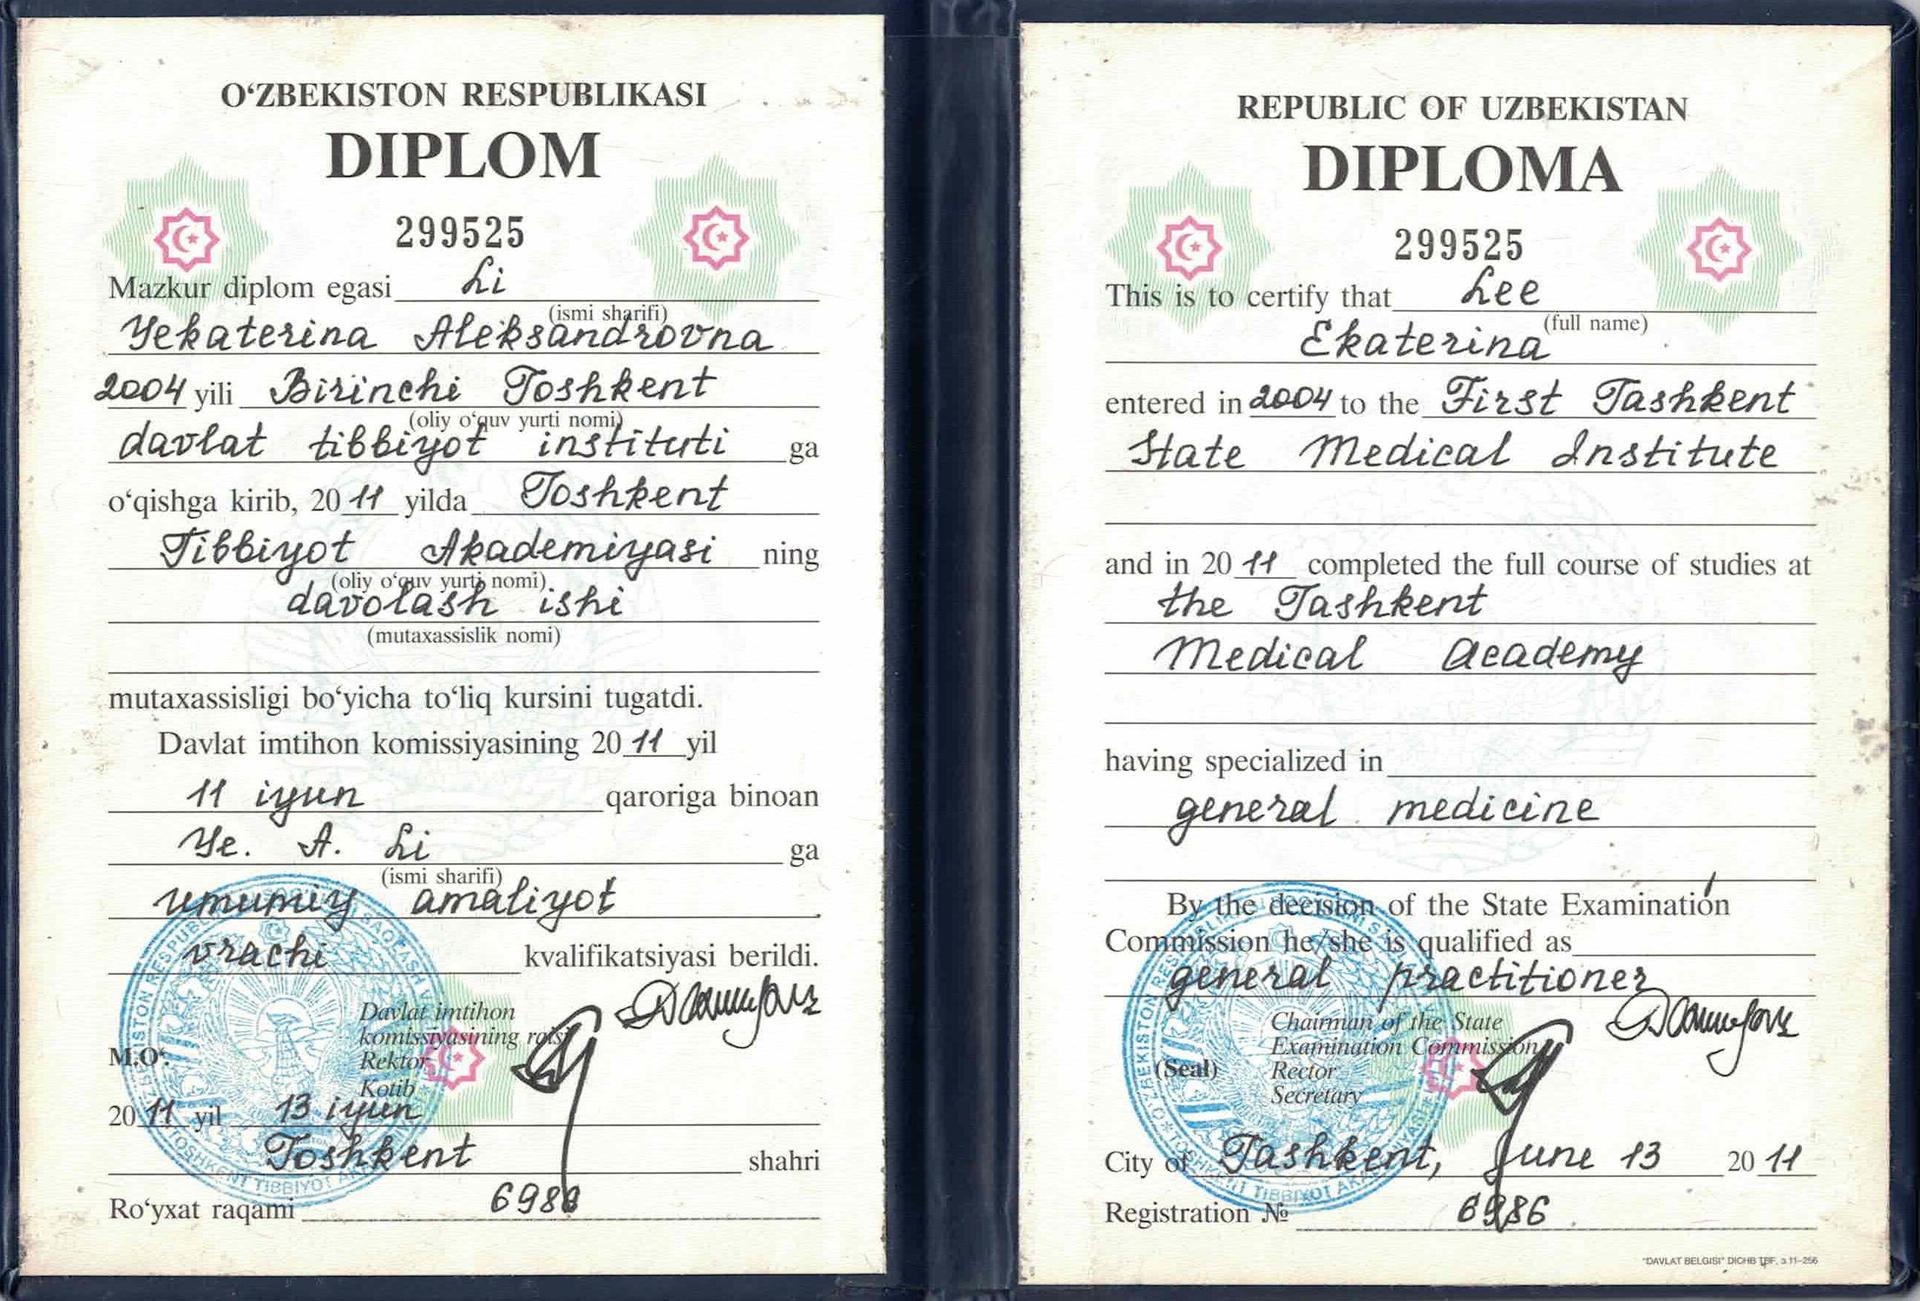 O‘ZBEKISTON RESPUBLIKASI
DIPLOM
299525
Mazkur diplom egasi Li
(ismi sharifi)
Yekaterina Aleksandrovna
2004 yili Birinchi Toshkent
(oliy o‘quv yurti nomi)
davlat tibbiyot instituti ga
o‘qishga kirib, 2011 yilda Toshkent
Tibbiyot Akademiyasi ning
(oliy o‘quv yurti nomi)
davolash ishi
(mutaxassislik nomi)
mutaxassisligi bo‘yicha to‘liq kursini tugatdi.
Davlat imtihon komissiyasining 2011 yil
11 iyun qaroriga binoan
Ye. A. Li ga
(ismi sharifi)
umumiy amaliyot
vrachi kvalifikatsiyasi berildi.
Davlat imtihon
komissiyasining raisi
Rektor
M.O‘.
Kotib
2011 yil 13 iyun
Toshkent shahri
Ro‘yxat raqami 6986
REPUBLIC OF UZBEKISTAN
DIPLOMA
299525
This is to certify that Lee
(full name)
Ekaterina
entered in 2004 to the First Tashkent
State Medical Institute
and in 2011 completed the full course of studies at
the Tashkent
Medical Academy
having specialized in
general medicine
By the decision of the State Examination
Commission he/she is qualified as
general practitioner
Chairman of the State
Examination Commission
(Seal) Rector
Secretary
City of Tashkent, June 13 2011
Registration № 6986
"DAVLAT BELGISI" DICHB TBF, з.11–256